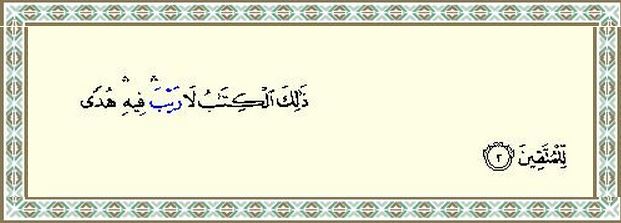 ذَٰلِكَ ٱلْكِتَٰبُ لَا رَيْبَ ۛ فِيهِ ۛ هُدًى
لِّلْمُتَّقِينَ ٢